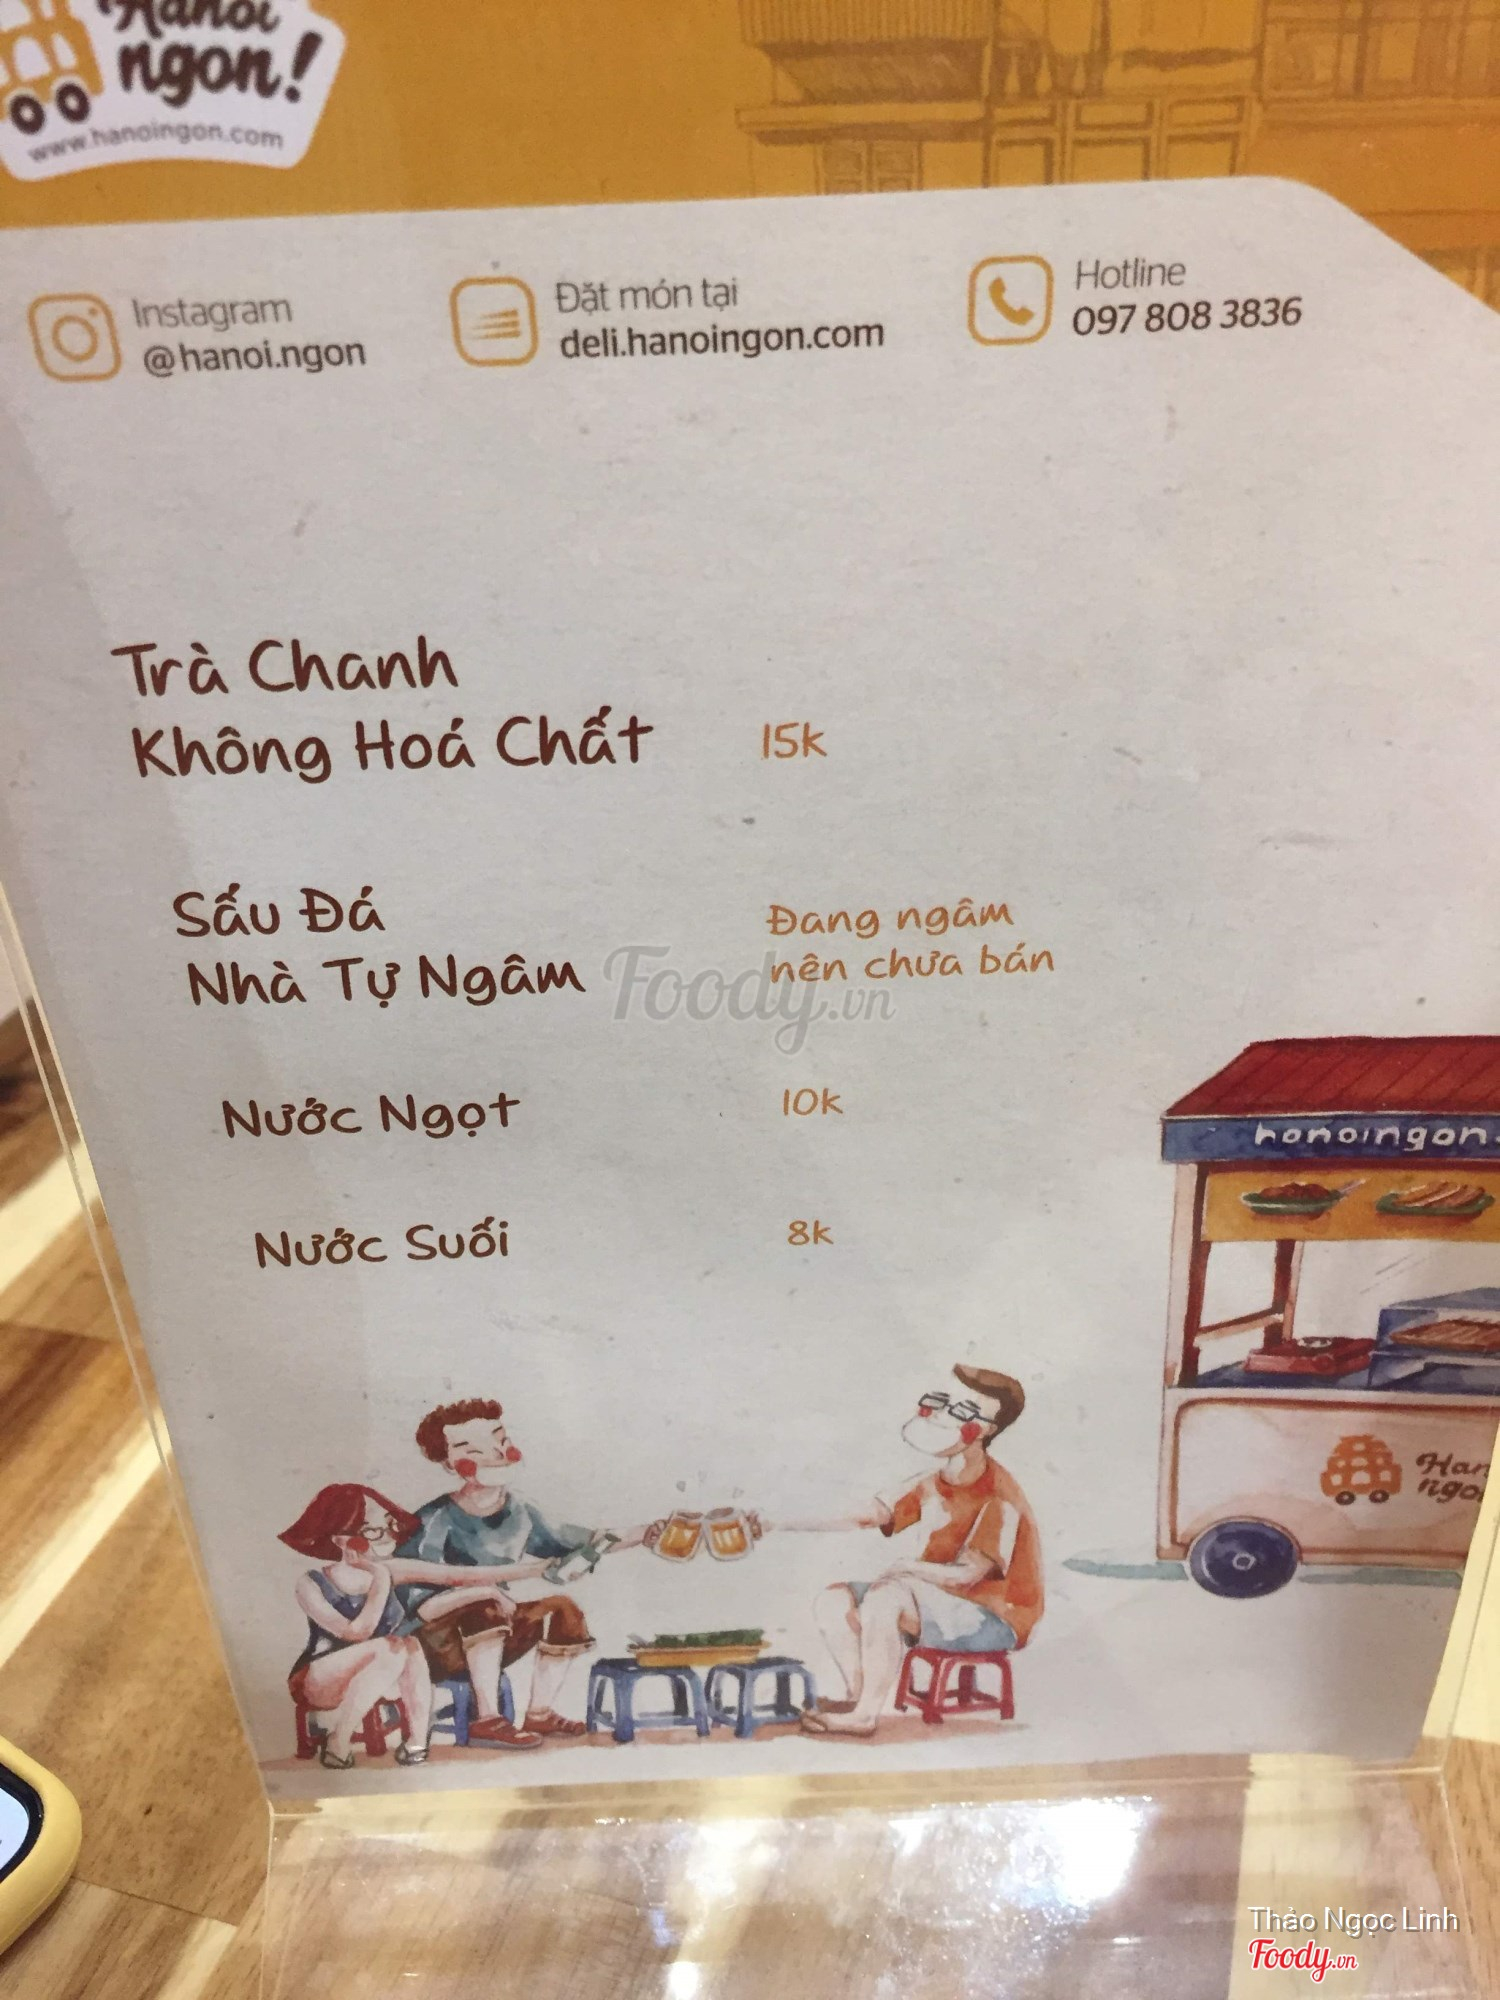 Hanoi
ngon!
www.hanoingon.com
Instagram
@hanoi.ngon
Đặt món tại
deli.hanoingon.com
Hotline
097 808 3836
Trà Chanh
Không Hoá Chất 15k
Sấu Đá
Nhà Tự Ngâm
Đang ngâm
nên chưa bán
Foody.vn
Nước Ngọt 10k
Nước Suối 8k
hanoingon.
Han
ngo
Thảo Ngọc Linh
Foody.vn